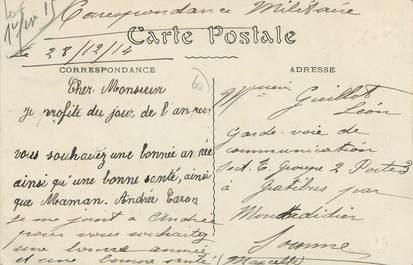 Correspondance Militaire
Carte Postale
Le 28/12/14
CORRESPONDANCE
ADRESSE
Cher Monsieur
je profite du jour de l'an pour
vous souhaitez une bonnée année
ainsi qu'une bonne santé, ainsi
que Maman. Andrée Caron
je me joint à Andrée
pour vous souhaitez
une bonne année
et une bonne santé
(Marcelle)
Monsieur Guillot
Léon
Garde-voie de
communication
Sect. E groupe 2 Poste 3
à Gratibus par
Montdidier
Somme